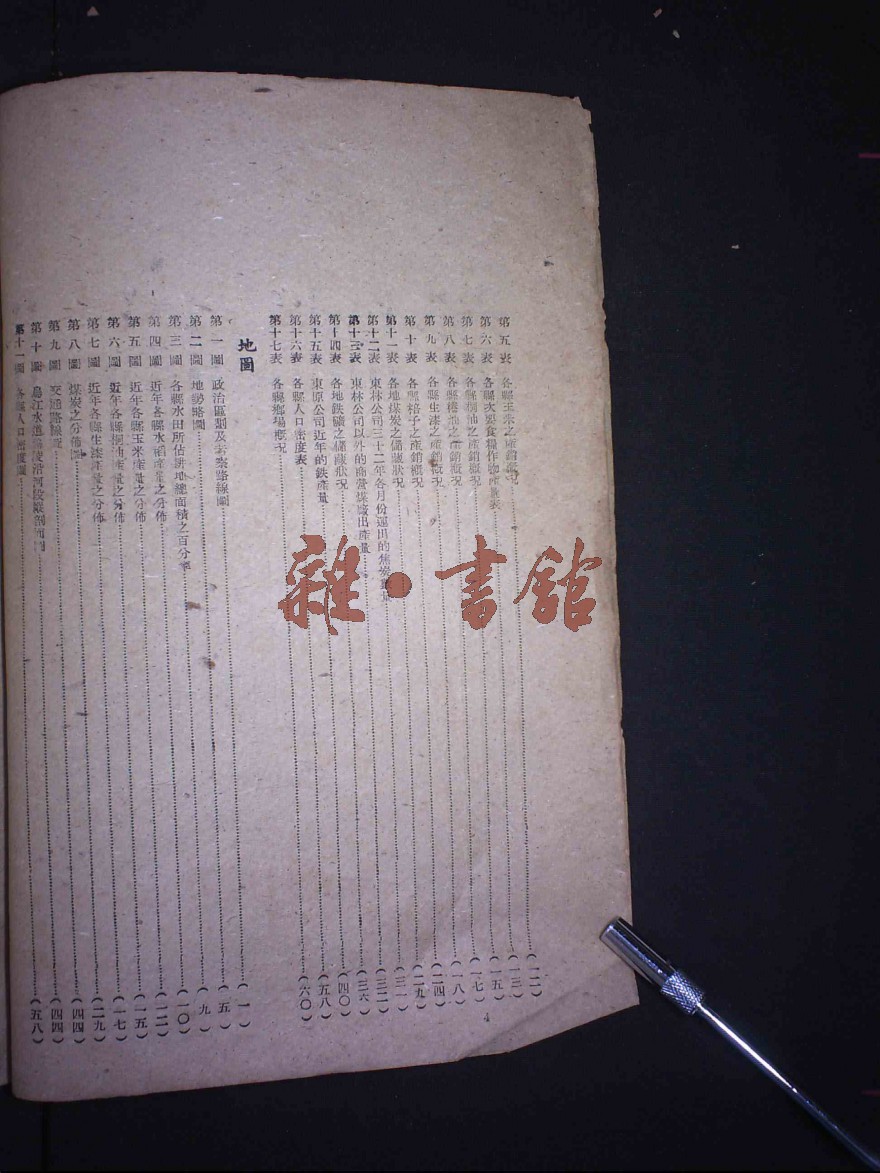 第五表 各縣玉米之產銷概況……(一二)
第六表 各縣次要食糧作物產量表……(一三)
第七表 各縣桐油之產銷概況……(一五)
第八表 各縣油之產銷概況……(一七)
第九表 各縣生漆之產銷概況……(一八)
第十表 各縣棓子之產銷概況……(二四)
第十一表 各地煤炭之儲藏狀況……(二九)
第十二表 東林公司三十二年各月份運出的焦炭量……(三一)
第十三表 東林公司以外的商營煤廠出產量……(三二)
第十四表 各地鉄礦之儲藏狀況……(三六)
第十五表 東原公司近年的鉄產量……(四〇)
第十六表 各縣人口密度表……(五八)
第十七表 各縣鄉場概況……(六〇)
地圖
第一圖 政治區劃及考察路線圖……(一)
第二圖 地勢略圖……(五)
第三圖 各縣水田所佔耕地總面積之百分率……(九)
第四圖 近年各縣水稻產量之分佈……(一〇)
第五圖 近年各縣玉米產量之分佈……(一二)
第六圖 近年各縣桐油產量之分佈……(一五)
第七圖 近年各縣生漆產量之分佈……(一七)
第八圖 煤炭之分佈圖……(二九)
第九圖 交通路線……(四四)
第十圖 烏江水道涪陵沿河段縱剖面圖……(四四)
第十一圖 各縣人口密度圖……(五八)
4
雜·書館